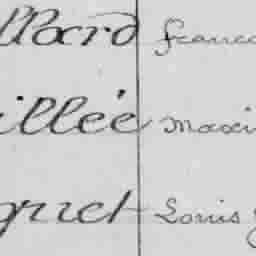 llard Franc
illée Maxi
quet Louis J